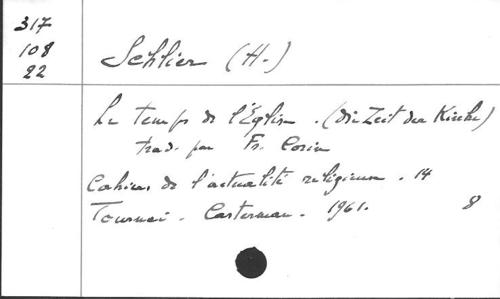 317
108
22
Schlier (H.)
Le Temps de l'Église. (die Zeit der Kirche)
trad. par Fr. Corin
Cahiers de l'actualité religieuse. 14
Tournai. Casterman. 1961. 8